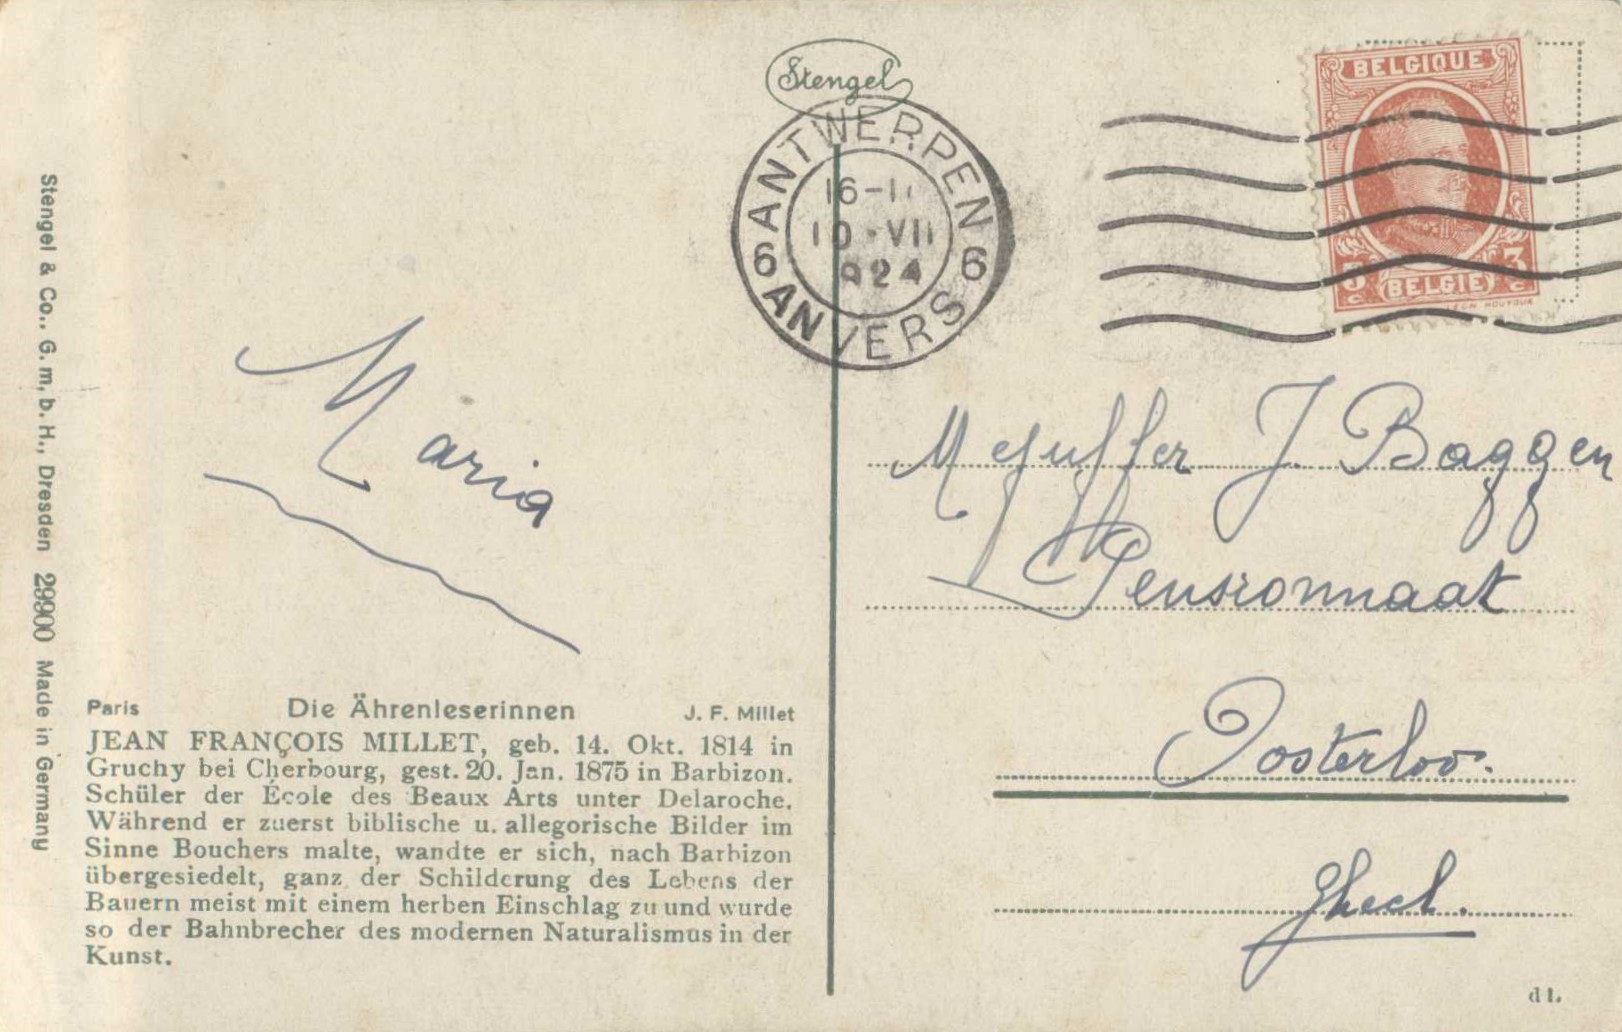 Stengel
ANTWERPEN
16-1
10·VII
924
6 6
ANVERS
BELGIQUE
3 3
c c
(BELGIE)
HOUYOUX
Maria
Mejuffer J. Baggen
Pensionnaat
Oosterloo.
Gheel.
Paris Die Ährenleserinnen J. F. Millet
JEAN FRANÇOIS MILLET, geb. 14. Okt. 1814 in
Gruchy bei Cherbourg, gest. 20. Jan. 1875 in Barbizon.
Schüler der École des Beaux Arts unter Delaroche.
Während er zuerst biblische u. allegorische Bilder im
Sinne Bouchers malte, wandte er sich, nach Barbizon
übergesiedelt, ganz der Schilderung des Lebens der
Bauern meist mit einem herben Einschlag zu und wurde
so der Bahnbrecher des modernen Naturalismus in der
Kunst.
Stengel & Co., G. m. b. H., Dresden 29900 Made in Germany
d 1.